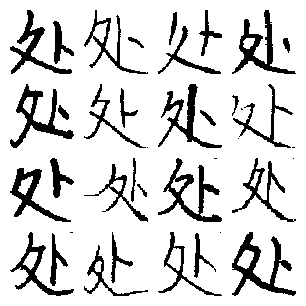 处处处处
处处处处
处处处处
处处处处